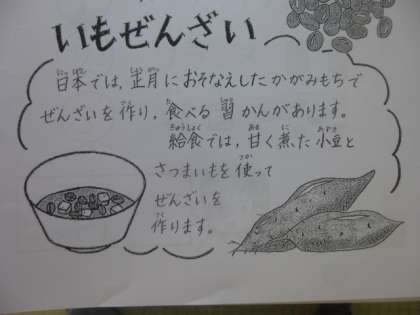 いもぜんざい
日本では,正月におそなえしたかがみもちで
ぜんざいを作り,食べる習かんがあります。
給食では,甘く煮た小豆と
さつまいもを使って
ぜんざいを
作ります。